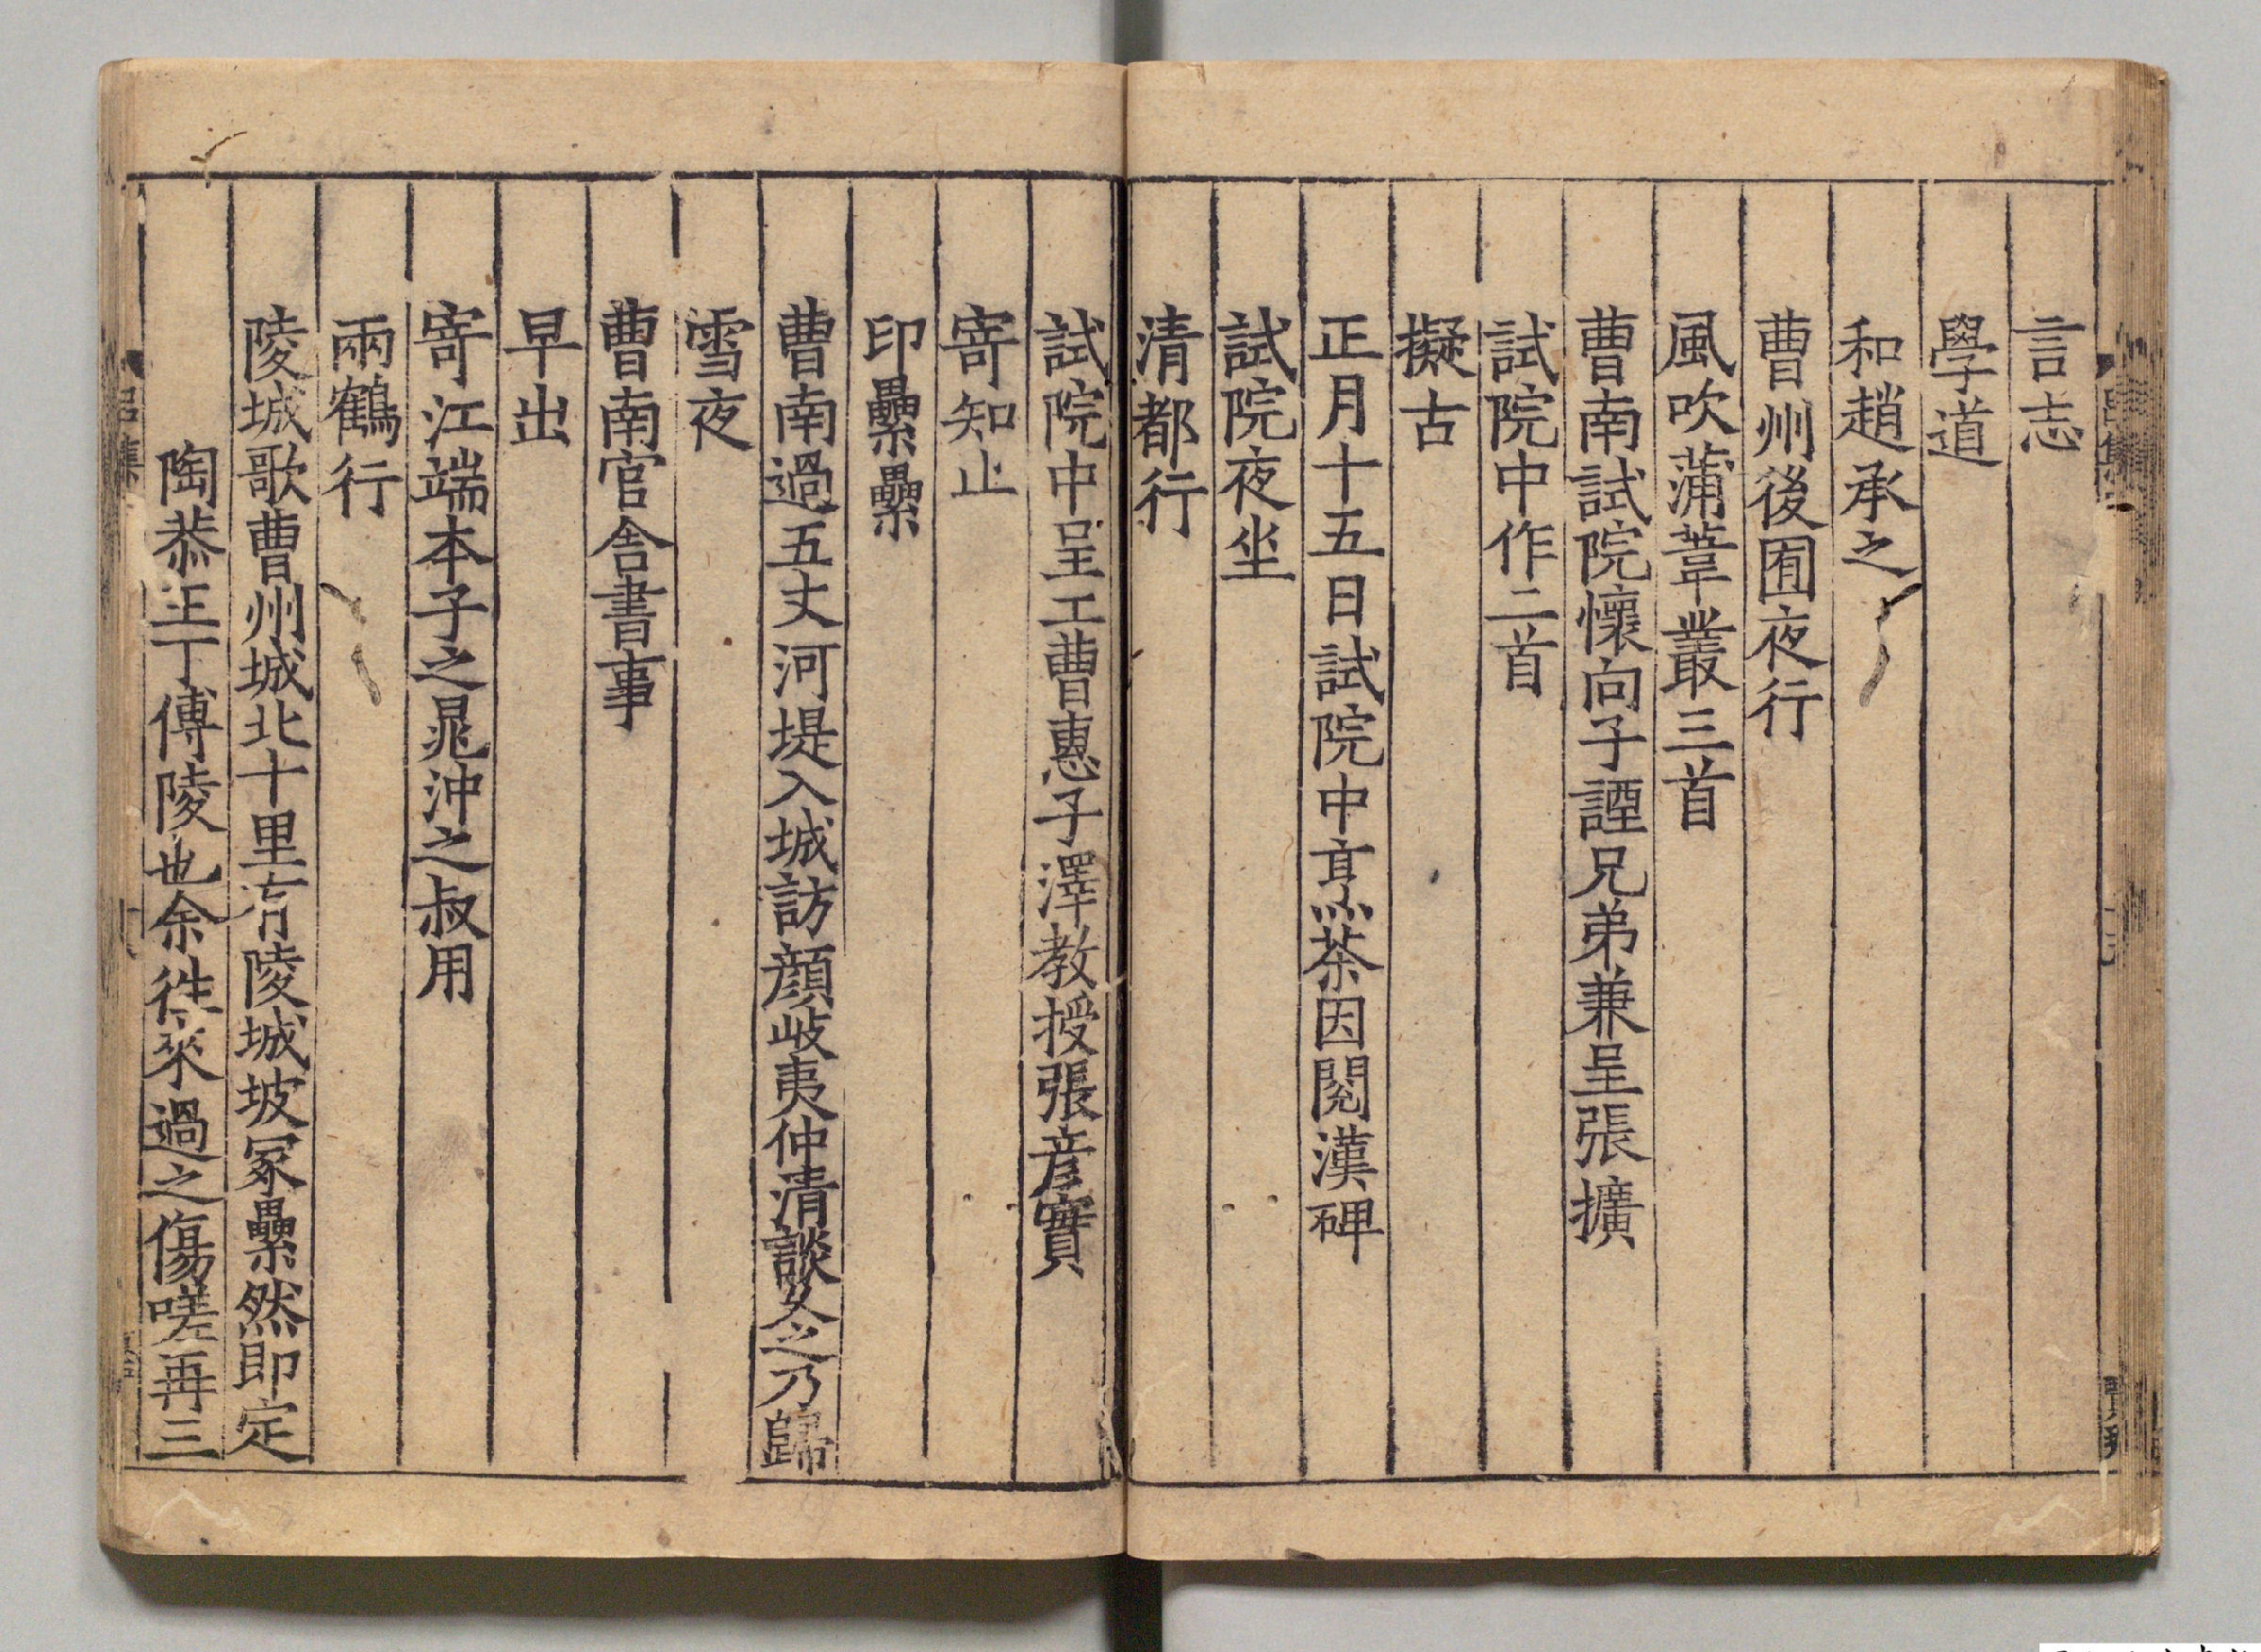 言志
學道
和趙承之
曹州後囿夜行
風吹蒲葦叢三首
曹南試院懷向子諲兄弟兼呈張擴
試院中作二首
擬古
正月十五日試院中烹茶因閱漢碑
試院夜坐
清都行
試院中呈工曹惠子澤教授張彥實
寄知止
印纍纍
曹南過五丈河堤入城訪顔岐夷仲清談久之乃歸
雪夜
曹南官舍書事
早出
寄江端本子之晁沖之叔用
兩鶴行
陵城歌曹州城北十里有陵城坡冢纍然即定
陶恭王丁傅陵也余徃來過之傷嗟再三